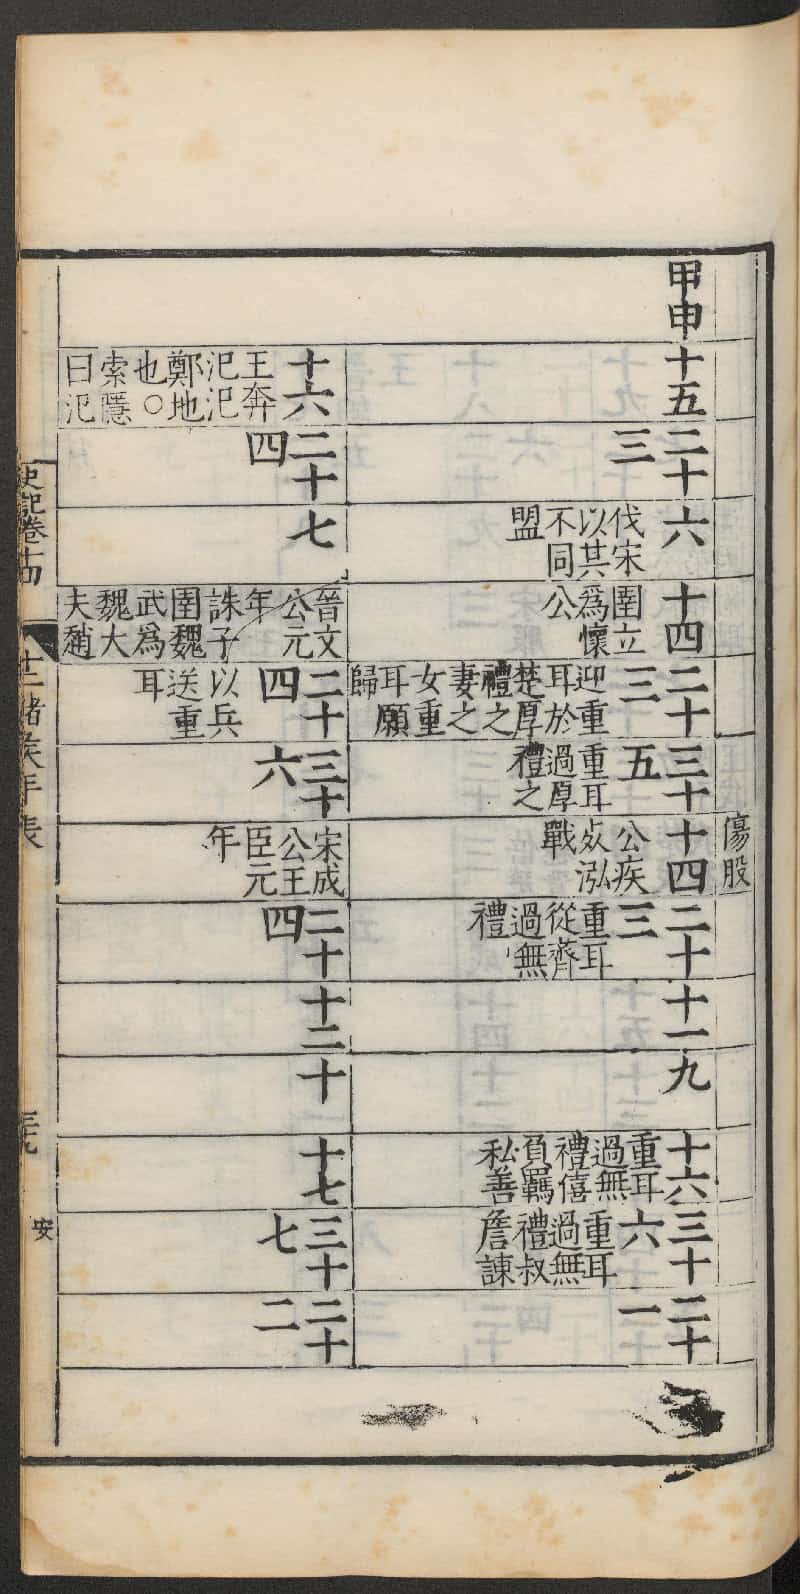 傷股
甲申
十五
二十三
六
伐宋以其不同盟
十四
圉立爲懷公
二十三
迎重耳於楚厚禮之妻之女重耳願歸
三十五
重耳過厚禮之
十四
公疾死泓戰
二十三
重耳從齊過無禮
十一
九
十六
重耳過無禮僖負羈私善
三十六
重耳過無禮叔詹諫
二十一
十六
王奔汜汜鄭地也○索隱曰汜
二十四
七
晉文公元年誅子圉魏武爲魏大夫趙
二十四
以兵送重耳
三十六
宋成公王臣元年
二十四
十二
十
十七
三十七
二十二
史記卷十四
十二諸侯年表
安